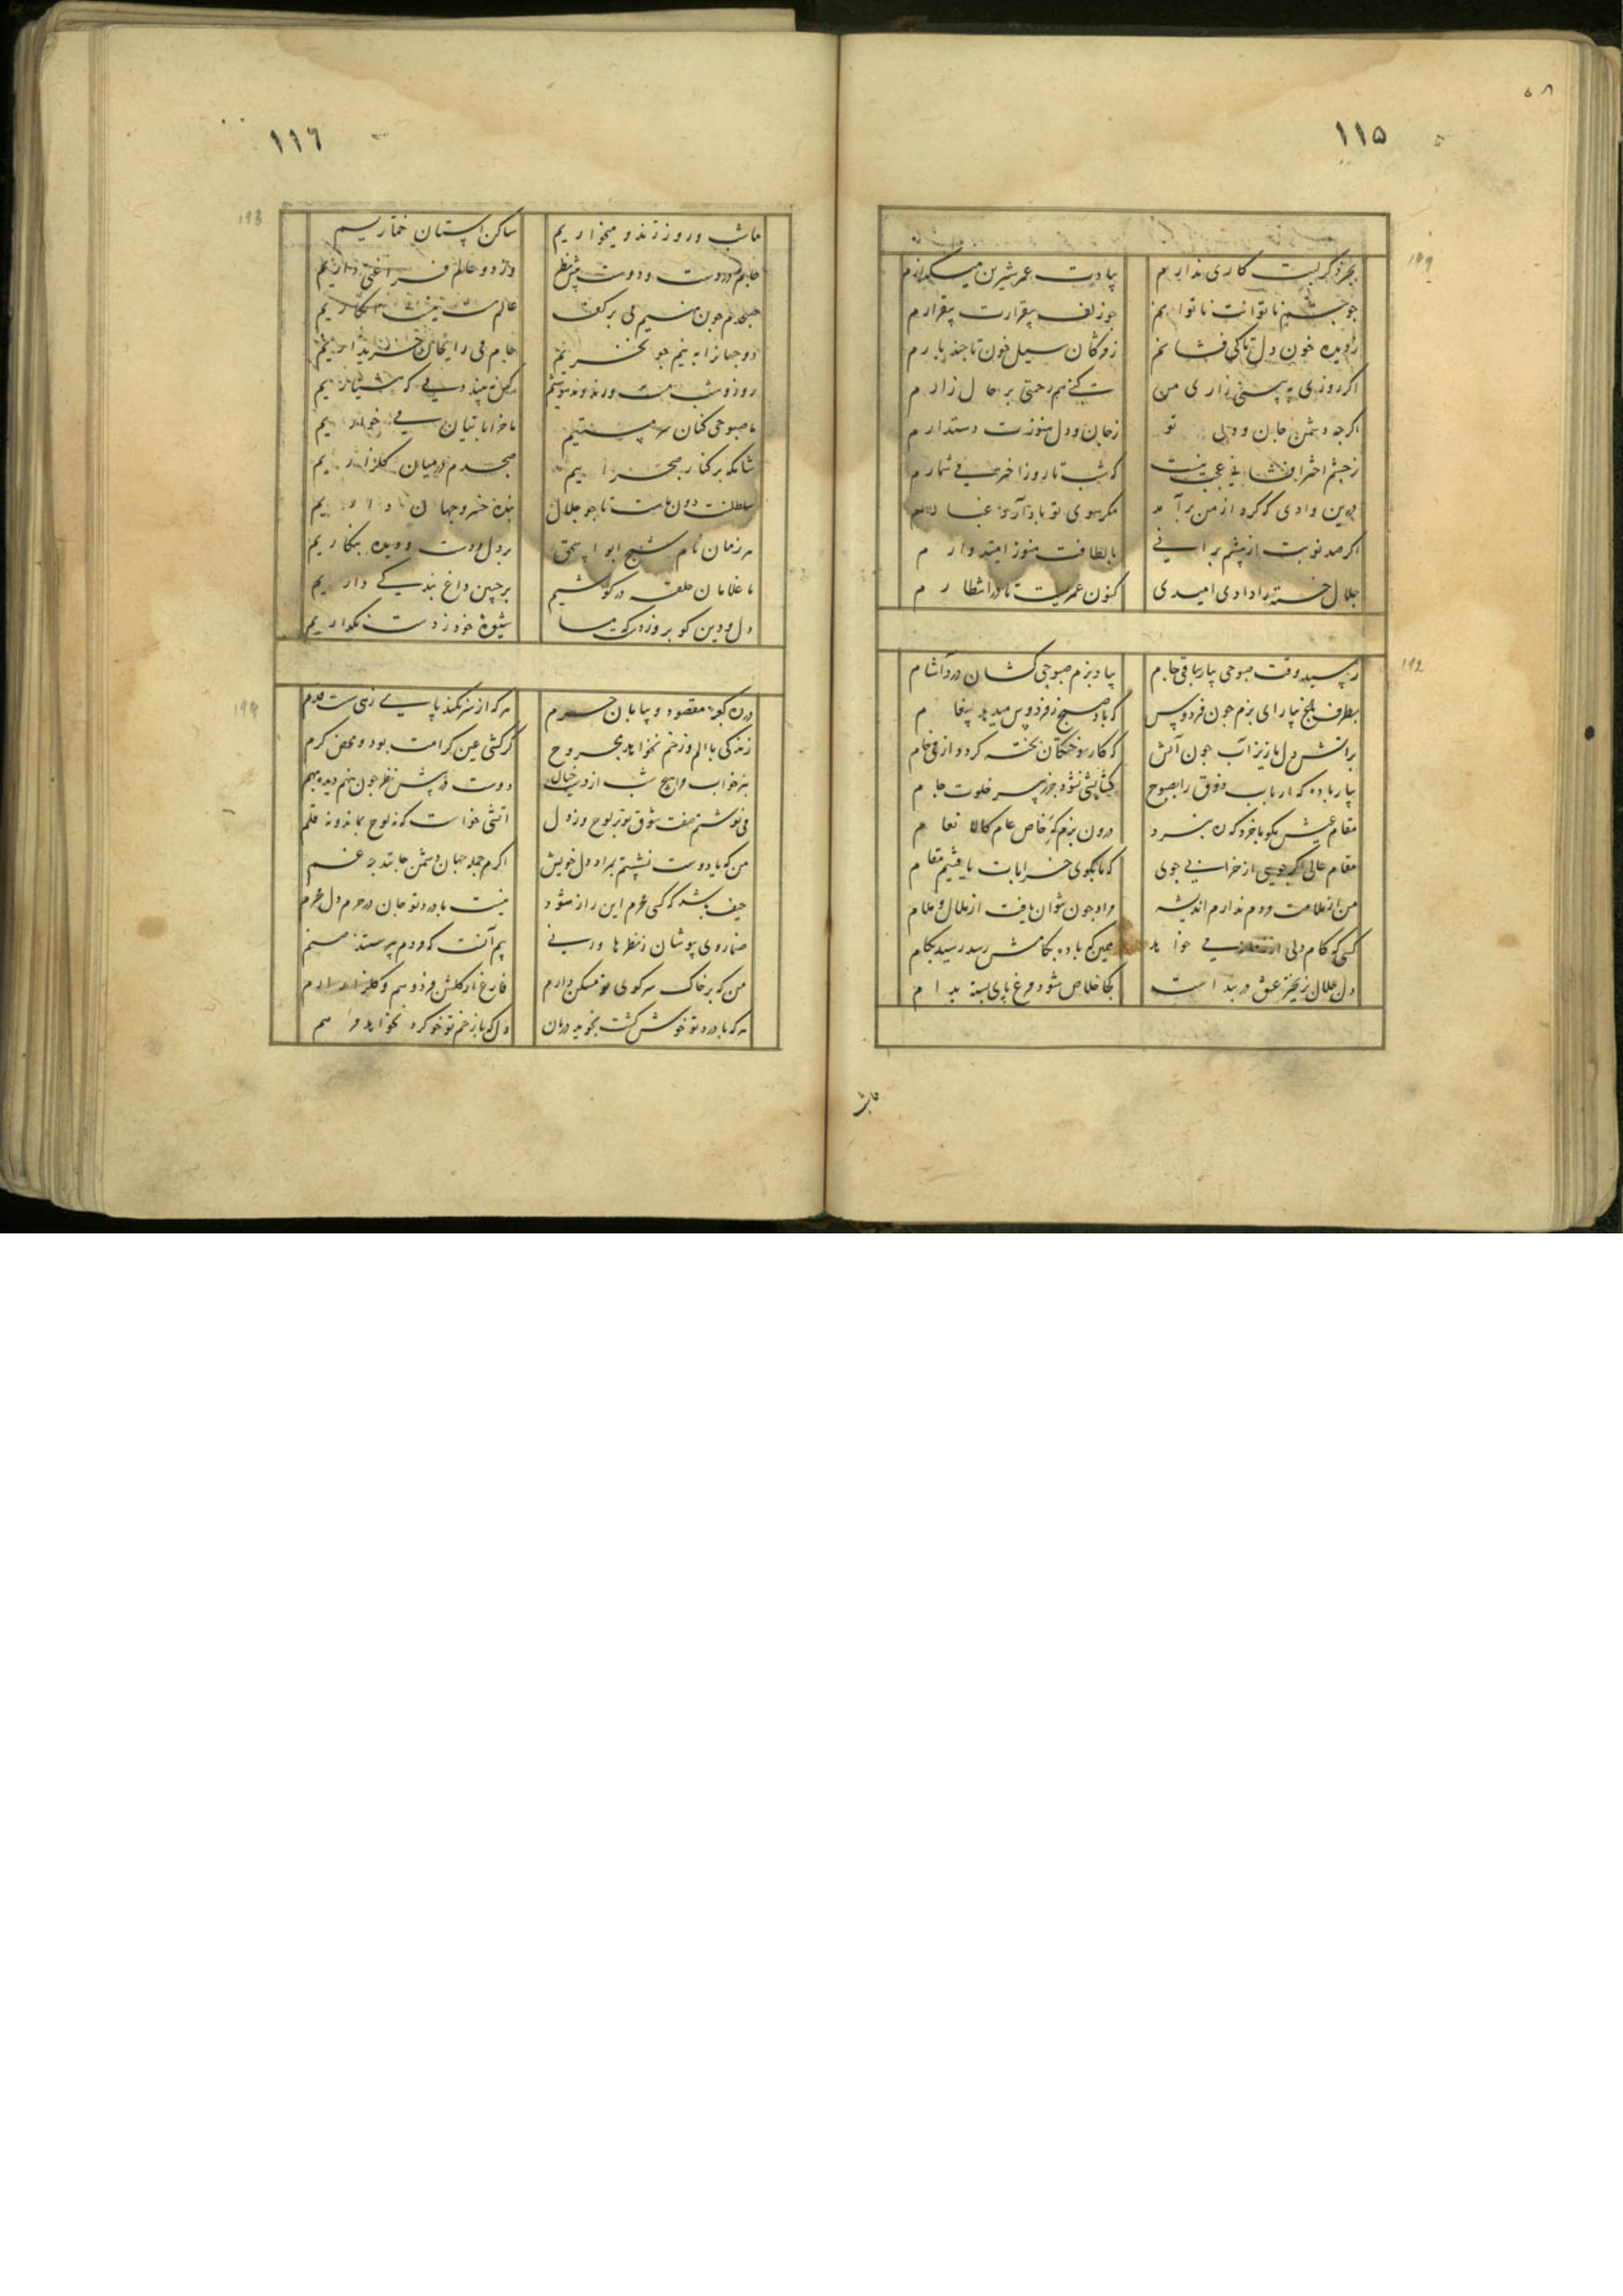 ۵۸
۱۱۵
۱۹۱
بجز ذکر لبت کاری ندارم بیادت عمر شیرین میگذارم
چو چشم ناتوانت ناتوانم چو زلف بیقرارت بیقرارم
ز دیده خون دل تا کی فشانم ز مژگان سیل خون تا چند بارم
اگر روزی به بینی زاری من کنی هم رحمتی بر حال زارم
اگرچه دشمن جان و دلی تو ز جان و دل هنوزت دستدارم
ز چشم اختر افشانی عجب نیست که شب تا روز اختر می شمارم
بدین وادی که گرد از من برآمد مگر سوی تو باد آرد غبارم
اگر صد نوبت از پیشم برانی بالطافت هنوز امیدوارم
جلال خسته را دادی امیدی کنون عمریست تا در انتظارم
۱۹۲
رسید وقت صبوحی بیار ساقی جام بیاد بزم صبوحی کشان درد آشام
بطرف باغ بیارای بزم چون فردوس که باد صبح ز فردوس میدهد پیغام
بر آتش دل ما ریز آب چون آتش که کار سوختگان پخته گردد از می خام
بیار باده که ارباب ذوق را بصبوح گشایشی نشود جز بسر خلوت جام
مقام عیش مگو با خرد که ره نبرد درون بزمگه خاص عام کالانعام
مقام عالی اگر جویی از خرابی جوی که ما بکوی خرابات یافتیم مقام
من از ملامت مردم ندارم اندیشه مراد چون نتوان یافت از ملال و ملام
کسی که کام دلی از می خواهد همین که باده بکامش رسد رسید بکام
دل جلال ز زنجیر عشق در بند است کجا خلاص شود مرغ پای بسته بدام
ماشب
۱۱۶
۱۹۳
ما شب و روز رند و میخواریم ساکن آستان خماریم
جام در دست و دوست پیش نظر وز دو عالم فراغتی داریم
صبحدم چون نسیم می بر کف
دو جهان را به نیم جو نخریم جام می را بجان خریداریم
روز و شب مست و رند و مدهوشیم
ما صبوحی کنان سرمستیم ما خراباتیان می خواریم
شامگه بر کنار صحراییم صبحدم در میان گلزاریم
سلطنت دون ماست تا چو جلال بنده خسرو جهانداریم
هر زمان نام شیخ ابو اسحق بر دل دوست و دیده بنگاریم
ما غلامان حلقه در گوشیم بر جبین داغ بندگی داریم
دل و دین گو برو زدست شیوه خود ز دست نگذاریم
۱۹۴
در ره کعبه مقصود و بیابان حرم هر که از سر نکند پای زهی سست قدم
زندگی با الم و زخم نخواهد مجروح گر کشی عین کرامت بود و محض کرم
نبرد خواب مرا هیچ شب از دست خیال دوست در پیش نظر چون نهم دیده بهم
می نوشتم صفت شوق تو بر لوح و ز دل آتشی خاست که نه لوح بماند و نه قلم
من که با دوست نشستم بمراد دل خویش اگرم جمله جهان دشمن جانند چه غم
حیف باشد که کسی محرم این راز شود نیست با درد تو جان در حرم دل محرم
صنما روی بپوشان ز نظرها ورنی بیم آنست که مردم بپرستند صنم
من که بر خاک سر کوی تو مسکن دارم فارغ از گلشن فردوسم و گلزار ارم
هر که با درد تو خوش گشت نجوید درمان دل که با زخم تو خو کرد نخواهد مرهم